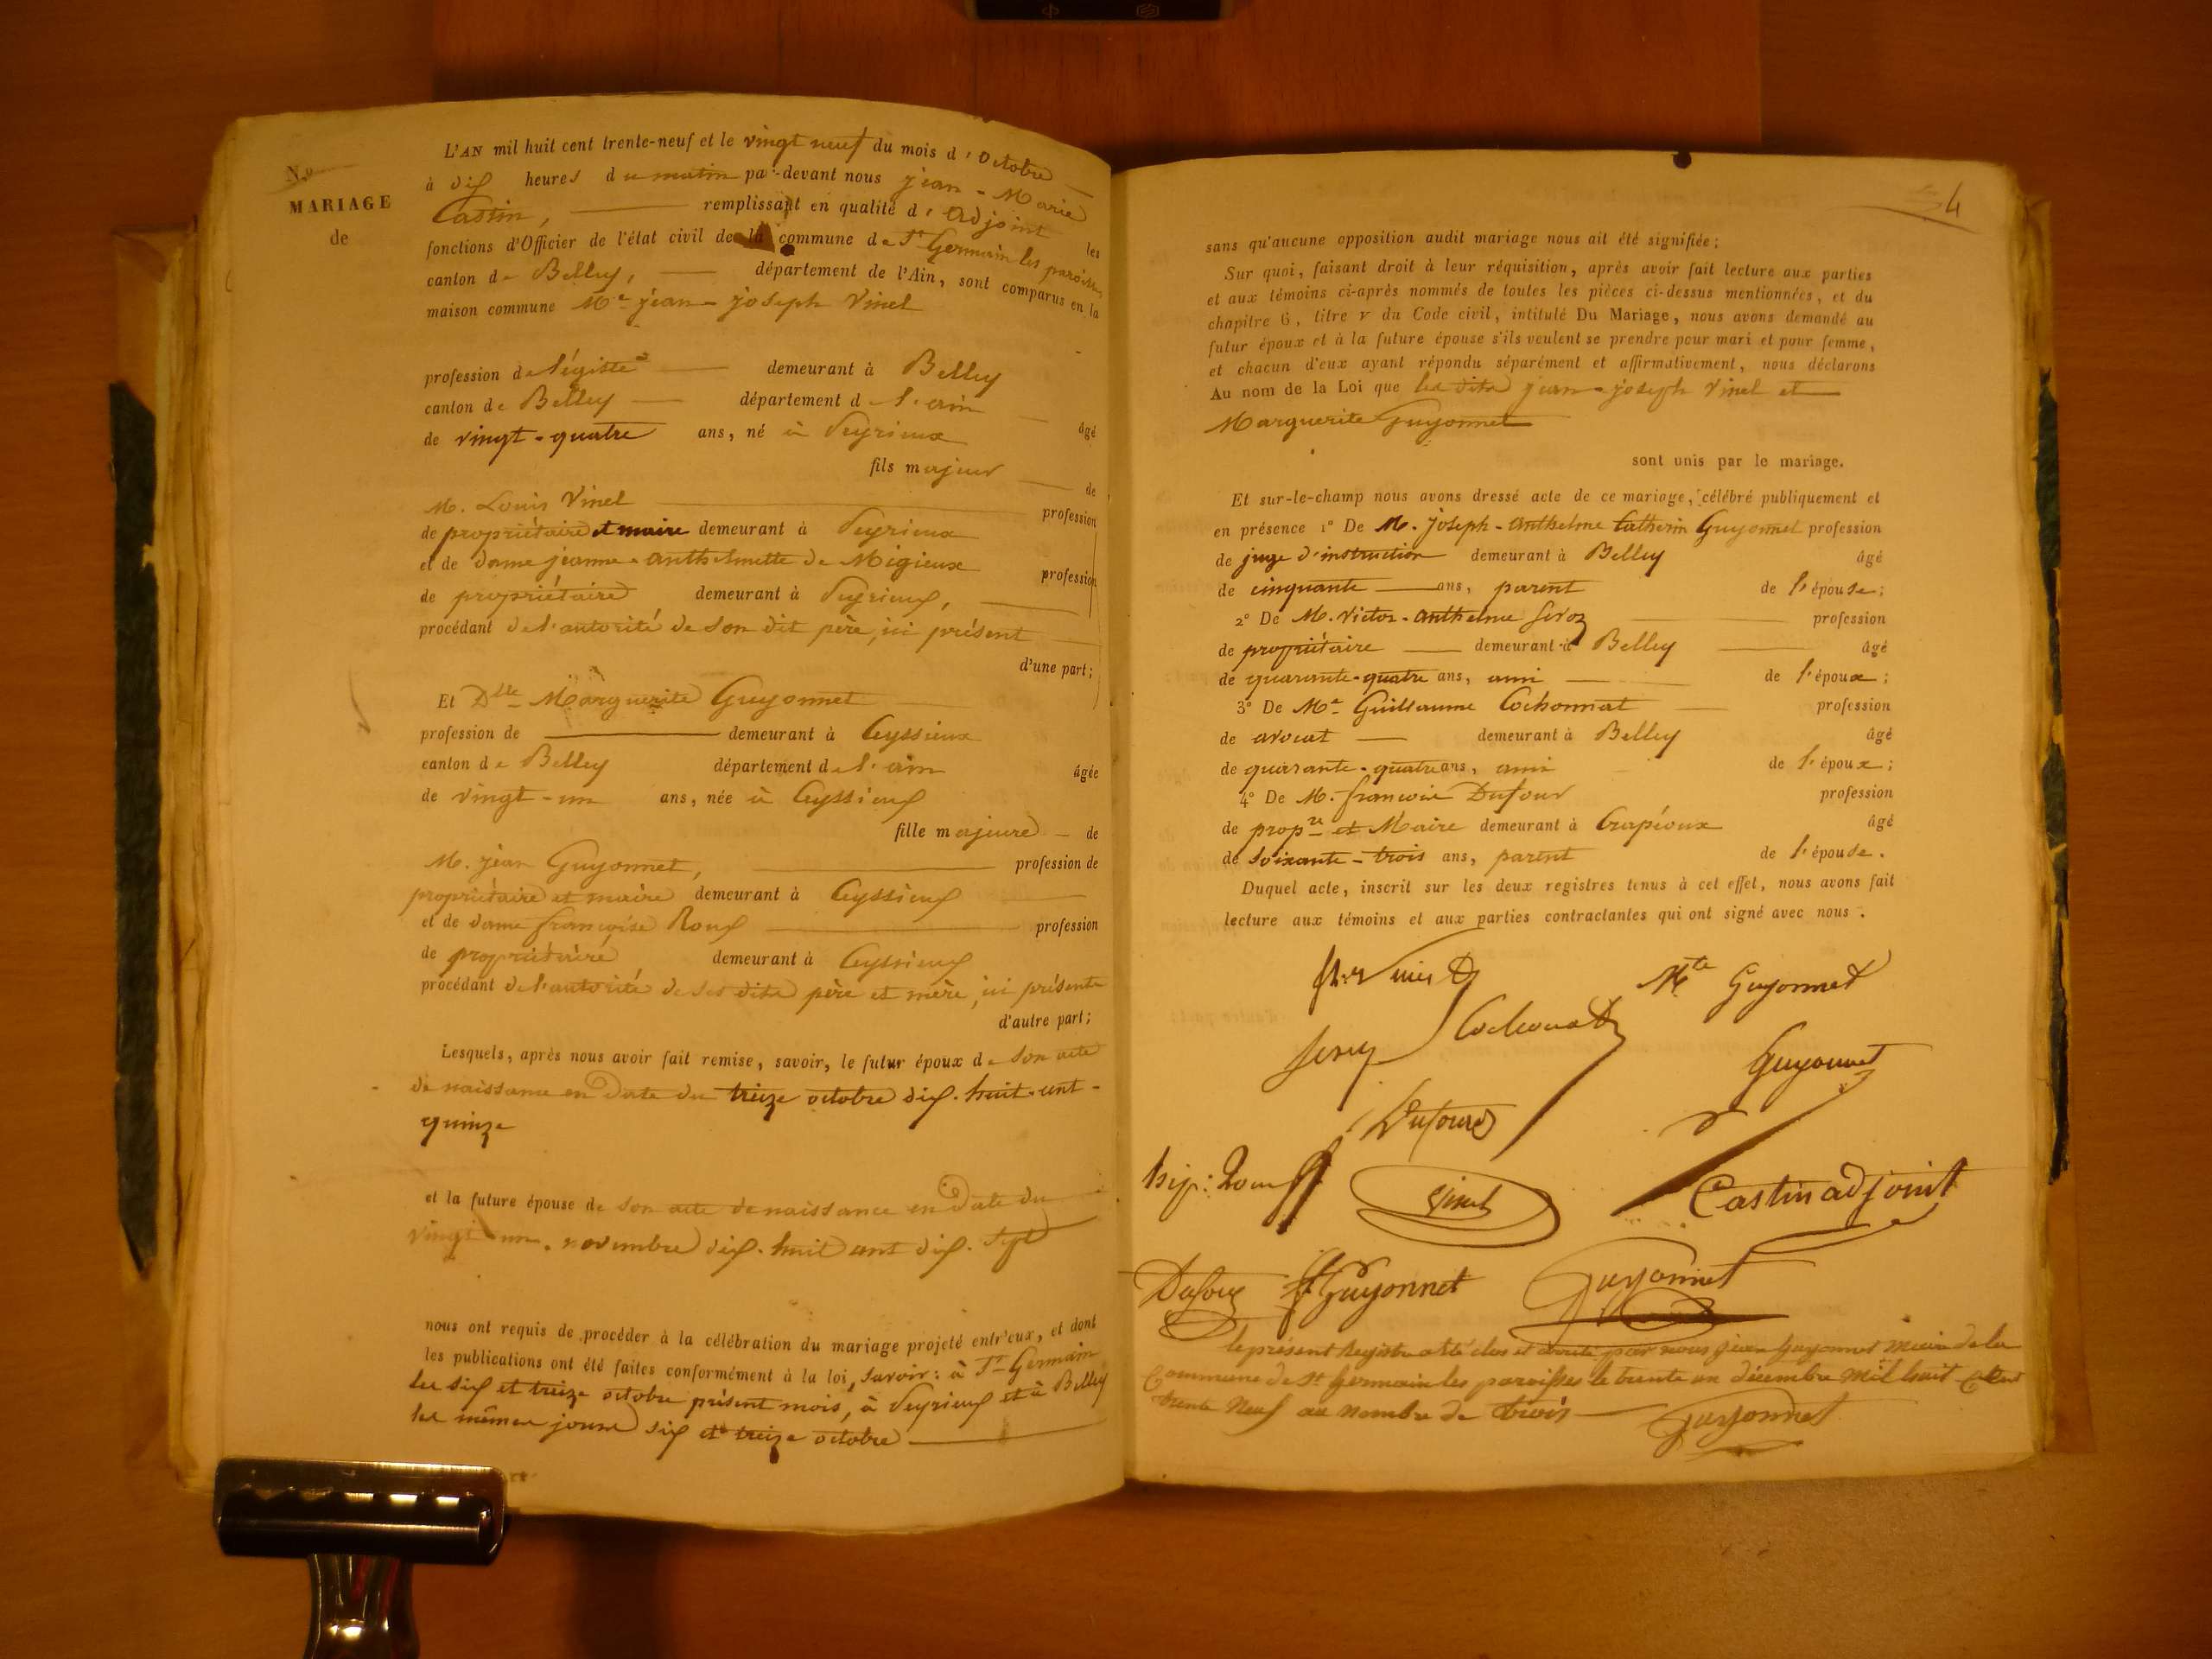 N.º
MARIAGE
de
L'AN mil huit cent trente-neuf et le vingt neuf du mois d'Octobre
à dix heures du matin par-devant nous jean-Marie
Castin, remplissant en qualité d'Adjoint les
fonctions d'Officier de l'état civil de la commune de St Germain les paroisses
canton de Belley, département de l'Ain, sont comparus en la
maison commune Mr jean-joseph Vinel
profession de légiste demeurant à Belley
canton de Belley département de l'ain âgé
de vingt-quatre ans, né à Peyrieux
fils majeur de
M. Louis Vinel profession
de propriétaire et maire demeurant à Peyrieux
et de dame jeanne-anthelmette de Migieux profession
de propriétaire demeurant à Peyrieux,
procédant de l'autorité de son dit père, ici présent
d'une part;
Et Dlle Marguerite Guyonnet
profession de demeurant à Ceyssieux
canton de Belley département de l'ain âgée
de vingt-un ans, née à Ceyssieux
fille majeure de
M. jean Guyonnet, profession de
propriétaire et maire demeurant à Ceyssieux
et de dame françoise Roux profession
de propriétaire demeurant à Ceyssieux
procédant de l'autorité de ses dits père et mère, ici présents
d'autre part;
Lesquels, après nous avoir fait remise, savoir, le futur époux de son acte
de naissance en date du treize octobre dix-huit-cent-
quinze
et la future épouse de son acte de naissance en date du
vingt-un novembre dix-huit cent dix-sept
nous ont requis de procéder à la célébration du mariage projeté entr'eux, et dont
les publications ont été faites conformément à la loi, savoir: à St Germain
les six et treize octobre présent mois, à Peyrieux et à Belley
les mêmes jours six et treize octobre
4
sans qu'aucune opposition audit mariage nous ait été signifiée;
Sur quoi, faisant droit à leur réquisition, après avoir fait lecture aux parties
et aux témoins ci-après nommés de toutes les pièces ci-dessus mentionnées, et du
chapitre 6, titre v du Code civil, intitulé Du Mariage, nous avons demandé au
futur époux et à la future épouse s'ils veulent se prendre pour mari et pour femme,
et chacun d'eux ayant répondu séparément et affirmativement, nous déclarons
Au nom de la Loi que les dits jean-joseph Vinel et
Marguerite Guyonnet
sont unis par le mariage.
Et sur-le-champ nous avons dressé acte de ce mariage, célébré publiquement et
en présence 1º De M. joseph-anthelme Catherin Guyonnet profession
de juge d'instruction demeurant à Belley âgé
de cinquante ans, parent de l'épouse;
2º De M. Victor-anthelme profession
de propriétaire demeurant à Belley âgé
de quarante-quatre ans, ami de l'époux;
3º De Mr Guillaume Cochonnat profession
de avocat demeurant à Belley âgé
de quarante-quatre ans, ami de l'époux;
4º De M. françois Dufour profession
de propre et Maire demeurant à Crapéoux âgé
de soixante-trois ans, parent de l'épouse.
Duquel acte, inscrit sur les deux registres tenus à cet effet, nous avons fait
lecture aux témoins et aux parties contractantes qui ont signé avec nous.
Vinel Mte Guyonnet
Cochonat
Guyonnet
Dufour
Roux Vinel Castin adjoint
Dufour Guyonnet Guyonnet
le présent Registre a été clos et arrêté par nous jean Guyonnet Maire de la
Commune de St Germain les paroisses le trente un décembre Mil huit Cent
trente Neuf au nombre de trois Guyonnet